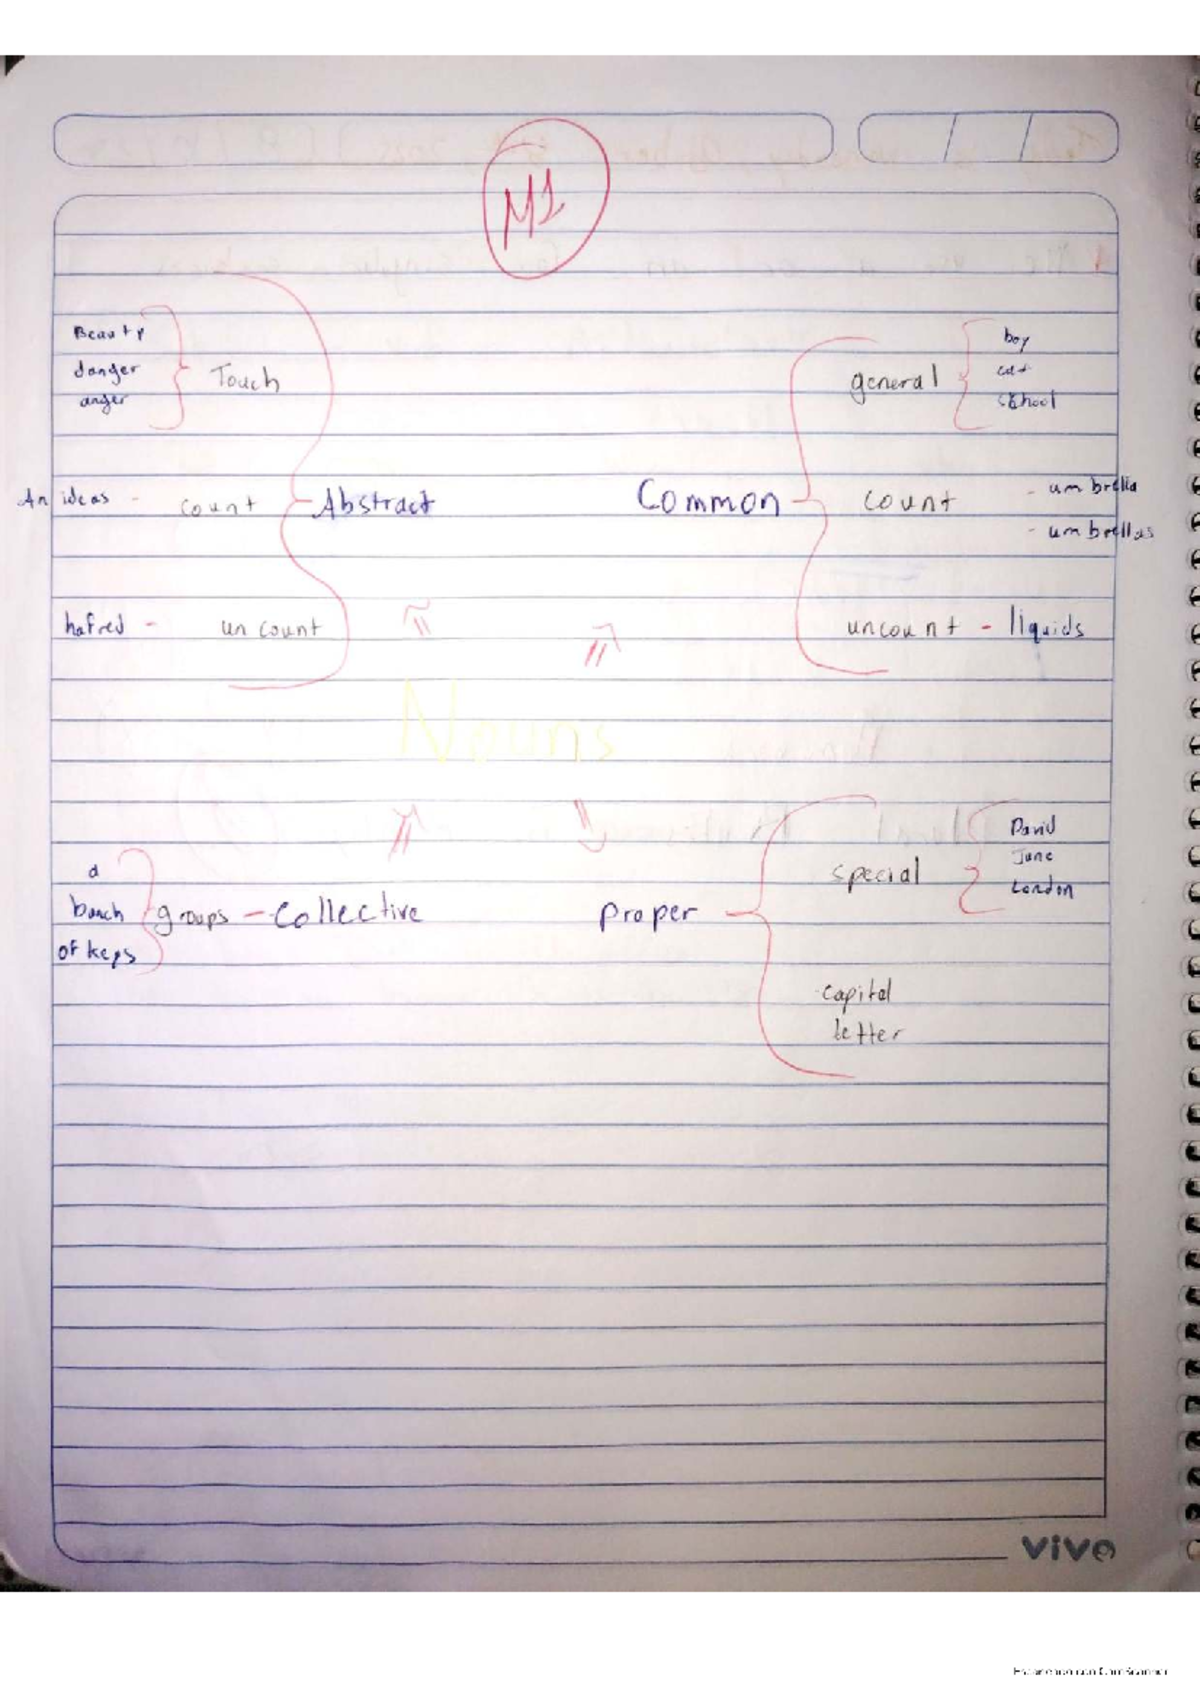 M1
Beauty
danger
anger
Touch
An ideas - count
Abstract
hafred - uncount
Common
general
boy
cat
school
count
- umbrella
- umbrellas
uncount - liquids
Nouns
a
bunch
of keys
groups - Collective
Proper
special
David
June
London
capital
letter
vivo
Escaneado con CamScanner